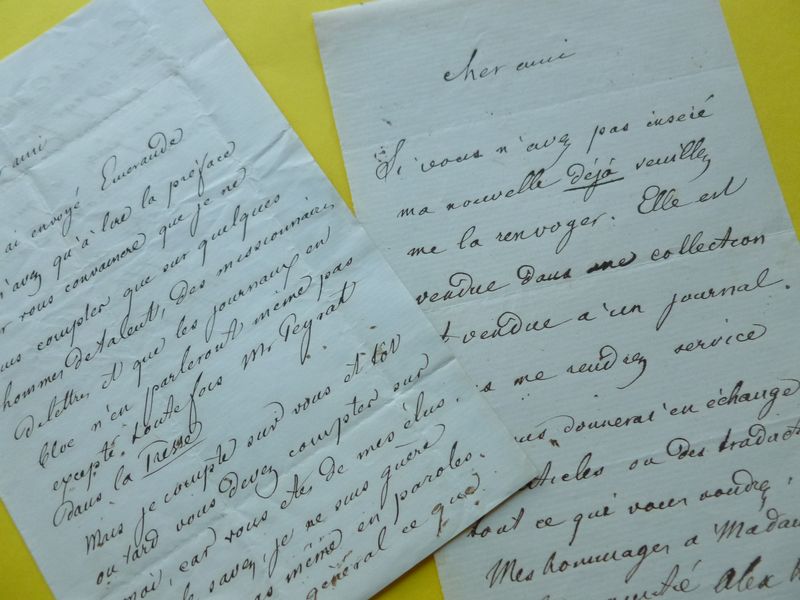 ami
ai envoyé Emeraude
n'avez qu'à lire la préface
vous convaincre que je ne
compter que sur quelques
hommes de talent, des missionnaires
de lettres et que les journaux en
bloc n'en parleront même pas
excepté toutefois Mr Peyrat
dans la Presse
Mais je compte sur vous et tôt
ou tard vous devez compter sur
moi, car vous êtes de mes élus.
le savez, je ne suis guère
même en paroles.
général ce que
cher ami
Si vous n'avez pas inséré
ma nouvelle déjà veuillez
me la renvoyer. Elle est
vendue dans une collection
vendue à un journal.
me rendrez service
donnerai en échange
articles ou des traduct
tout ce que vous voudrez.
Mes hommages a Madam
alex